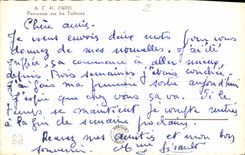 A. C. 41. PARIS
Panorama sur les Tuileries
2
Chère amie.
Je vous envois deux mots pour vous
donnez de mes nouvelles. j'ai été
ça commence à aller mieux
depuis trois semaines j'étais couchée
je fais ma première sortie aujourd'hui
J'espère que chez vous ça va. Si le
temps se maintient je compte rentrer
à la fin de semaine prochaine.
Recevez mes amitiés et mon bon
souvenir.